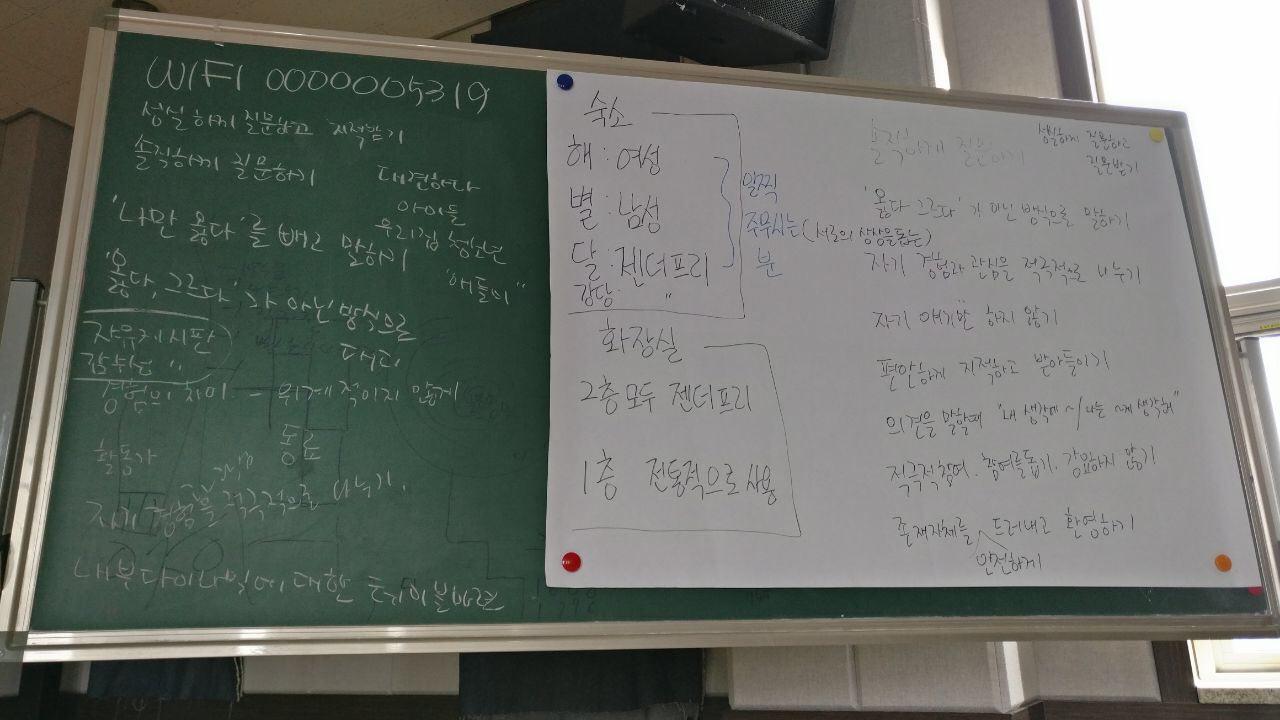 WIFI 0000005319
성실하게 질문하고 지적받기
솔직하게 질문하기
대견하다
아이들
우리집 청소년
"애들이"
'나만 옳다'를 빼고 말하기
'옳다, 그르다'가 아닌 방식으로
대화
자유게시판
경험의 차이 - 위계적이지 않게
동료
활동가
자기 경험을 적극적으로 나누기.
내부 다이나믹에 대한
숙소
해 : 여성
별 : 남성
달 : 젠더프리
강당 "
일찍
주무시는
분
화장실
2층 모두 젠더프리
1층 전통적으로 사용
솔직하게 질문하기
성실하게 질문하고
질문받기
'옳다 그르다'가 아닌 방식으로 말하기
(서로의 성장을 돕는)
자기 경험과 관심을 적극적으로 나누기
자기 얘기만 하지 않기
편안하게 지적하고 받아들이기
의견을 말할때 "내 생각에~/나는 ~게 생각해"
적극적참여. 참여를돕기. 강요하지 않기
존재자체를 드러내고 환영하기
안전하게